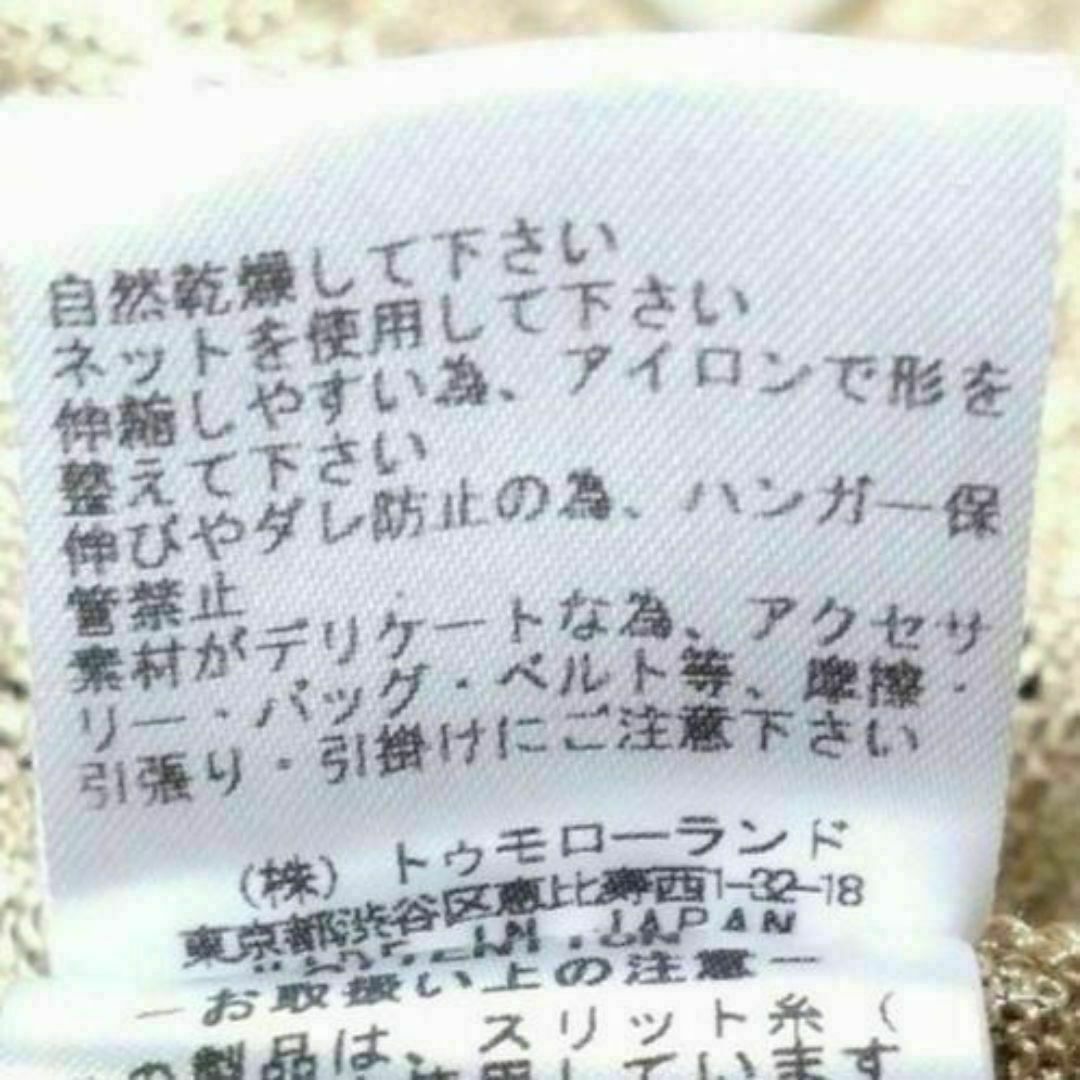 自然乾燥して下さい
ネットを使用して下さい
伸縮しやすい為、アイロンで形を
整えて下さい
伸びやダレ防止の為、ハンガー保
管禁止
素材がデリケートな為、アクセサ
リー・バッグ・ベルト等、摩擦・
引張り・引掛けにご注意下さい
(株)トゥモローランド
東京都渋谷区恵比寿西1-32-18
IN JAPAN
ーお取扱い上の注意ー
の製品は、スリット糸(
使用しています